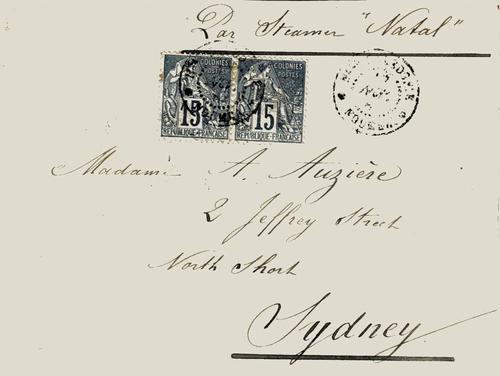 Par Steamer "Natal"
COLONIES COLONIES
POSTES POSTES
15 15
REPUBLIQUE FRANÇAISE REPUBLIQUE FRANÇAISE
Madame A. Auzière
2 Jeffrey Street
North Short
Sydney